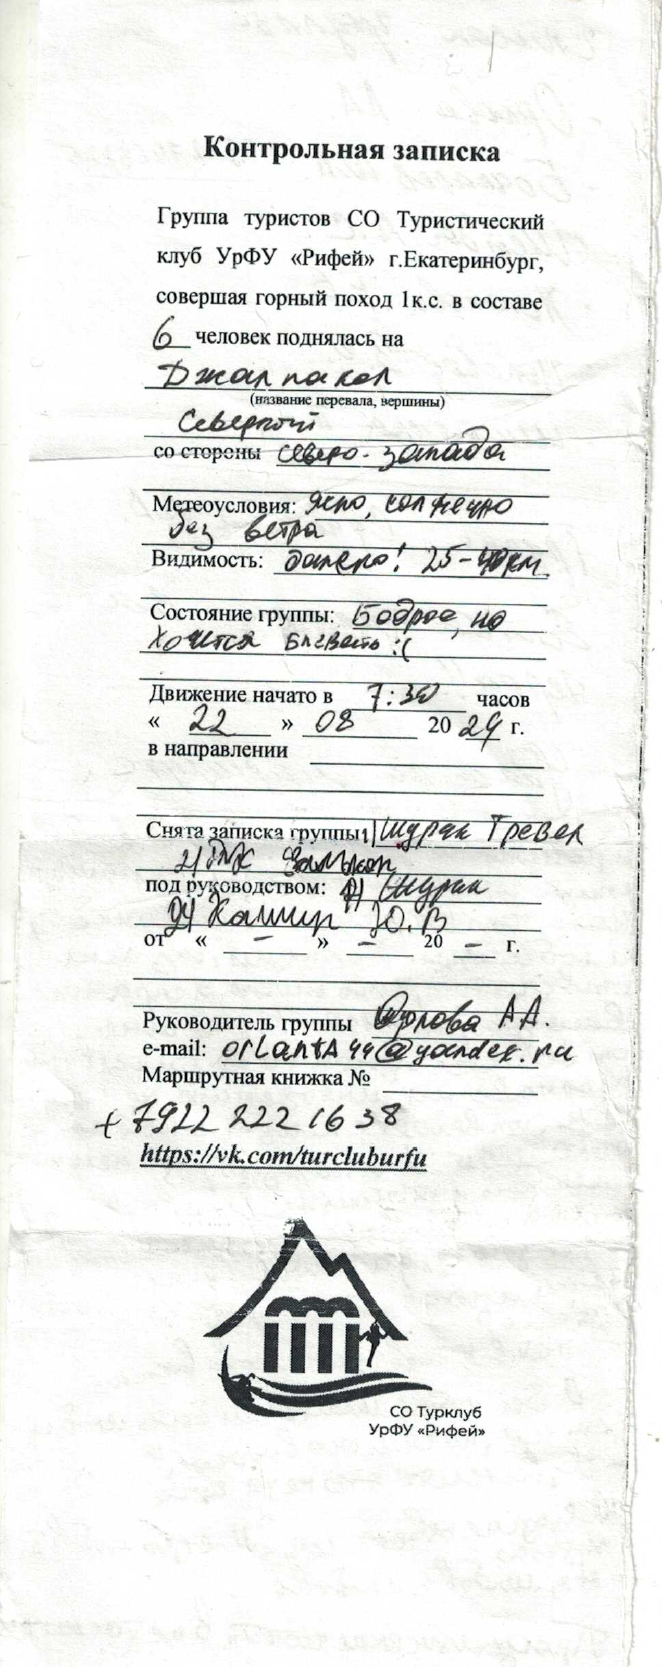 Контрольная записка
Группа туристов СО Туристический
клуб УрФУ «Рифей» г.Екатеринбург,
совершая горный поход 1к.с. в составе
6 человек поднялась на
Джалпакол
(название перевала, вершины)
Северный
со стороны северо-запада
Метеоусловия: Ясно, солнечно
без ветра
Видимость: далеко! 25-40км.
Состояние группы: Бодрое, но
хочется блевать :(
Движение начато в 7:30 часов
« 22 » 08 2024 г.
в направлении
Снята записка группы: 1) Шурак Тревел
2)
под руководством: 1) Шурак
2) Кашир Ю.В
от « – » – 20 – г.
Руководитель группы Орлова А А.
e-mail: orlantA44@yandex.ru
Маршрутная книжка №
+7922 222 1638
https://vk.com/turcluburfu
СО Турклуб
УрФУ «Рифей»